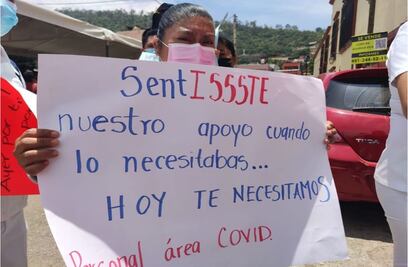 SentISSSTE
nuestro apoyo cuando
lo necesitabas...
HOY TE NECESITAMOS
Personal área COVID.
Ayer por ti
SE VENDE
TIIDA